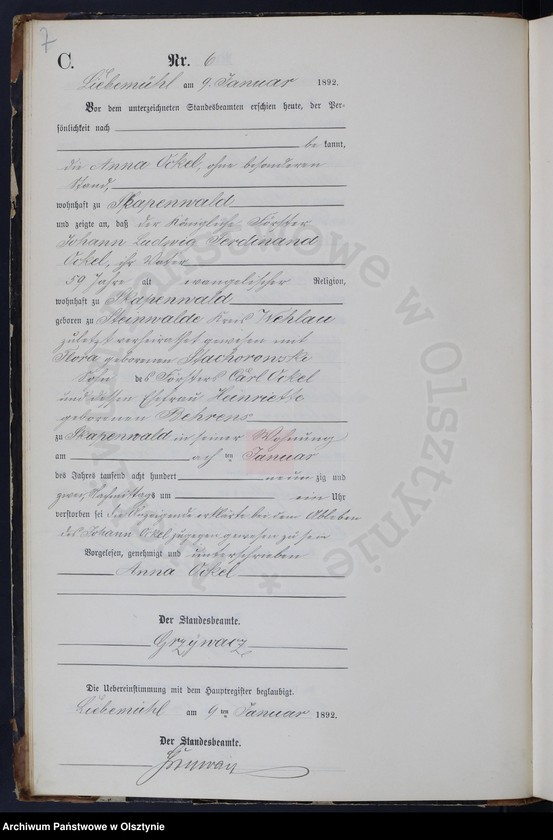 7
C.
Nr. 6
Liebemühl am 9. Januar 1892.
Vor dem unterzeichneten Standesbeamten erschien heute, der Per-
sönlichkeit nach
be kannt,
die Anna Ockel, ohne besonderen
Stand,
wohnhaft zu Skapenwald
und zeigte an, daß der Königliche Förster
Johann Ludwig Ferdinand
Ockel, ihr Vater
59 Jahre alt evangelischer Religion,
wohnhaft zu Skapenwald
geboren zu Steinwalde Kreis Wehlau
zuletzt verheirathet gewesen mit
Flora geborenen Stachorowski
Sohn des Försters Carl Ockel
und dessen Ehefrau Heinriette
geborenen Behrens
zu Skapenwald in seiner Wohnung
am acht ten Januar
des Jahres tausend acht hundert neun zig und
zwei, Nachmittags um ein Uhr
verstorben sei die Anzeigende erklärte bei dem Ableben
des Johann Ockel zugegen gewesen zu sein
Vorgelesen, genehmigt und unterschrieben
Anna Ockel
Der Standesbeamte.
Grzywacz
Die Uebereinstimmung mit dem Hauptregister beglaubigt.
Liebemühl am 9ten Januar 1892.
Der Standesbeamte.
Archiwum Państwowe w Olsztynie
Archiwum Państwowe w Olsztynie